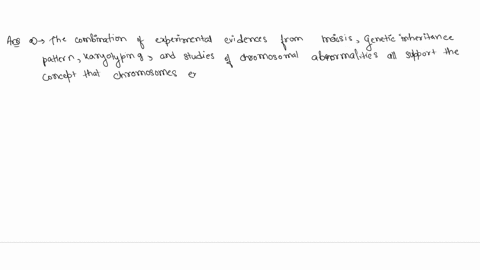 Ans a)→ The combination of experimental evidences from meiosis, Genetic inheritance
pattern, Karyotyping, and studies of chromosomal abnormalities all support the
concept that chromosomes ex